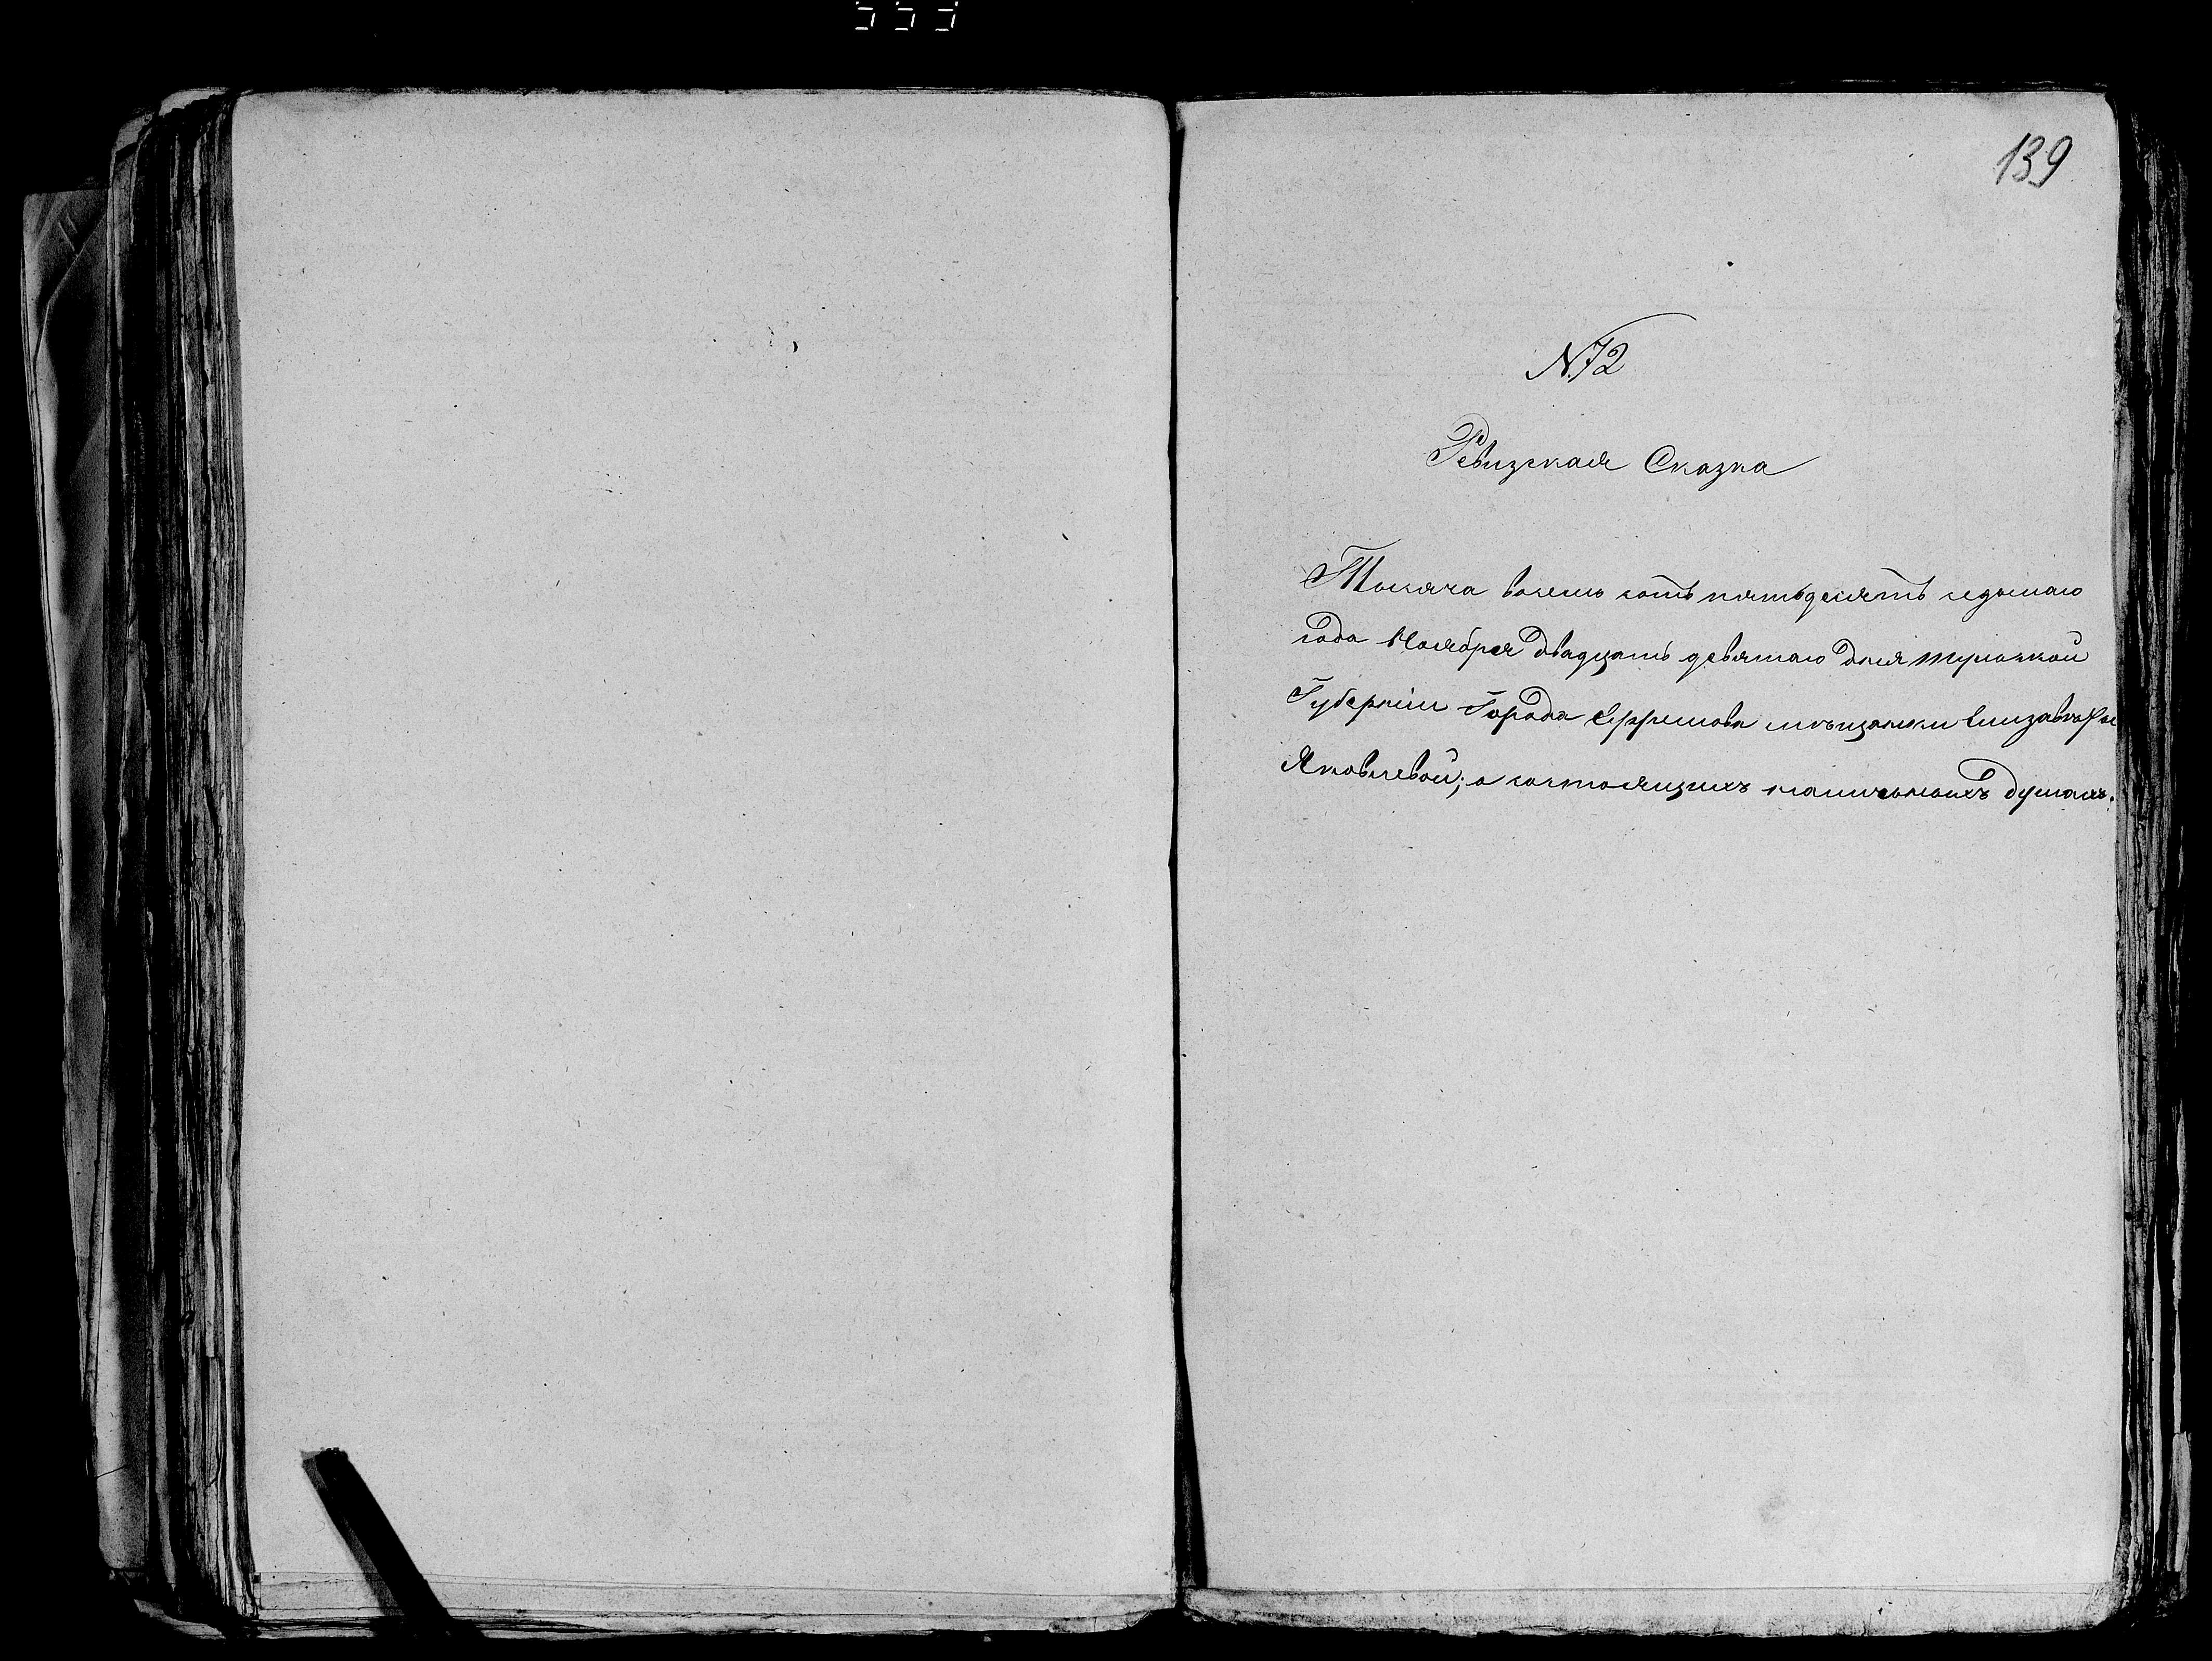 139
N. 72
Ревизская Сказка
Тысяча восемь сотъ пятьдесятъ седьмаго
года Ноября двадцать девятаго дня тульской
Губерніи Города Ефремова мѣщанки Елизаветы
Яковлевой; о состоящихъ наличныхъ душахъ.